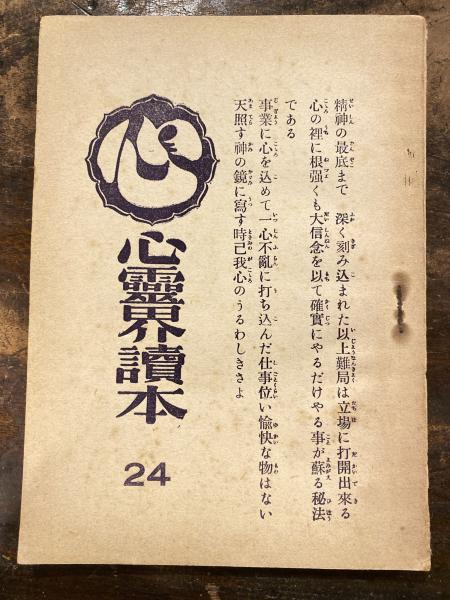 精神の最底まで 深く刻み込まれた以上難局は立場に打開出來る
心の裡に根强くも大信念を以て確實にやるだけやる事が蘇る秘法
である
事業に心を込めて一心不亂に打ち込んだ仕事位い愉快な物はない
天照す神の鏡に寫す時己我心のうるわしきさよ
心
心靈界讀本
24